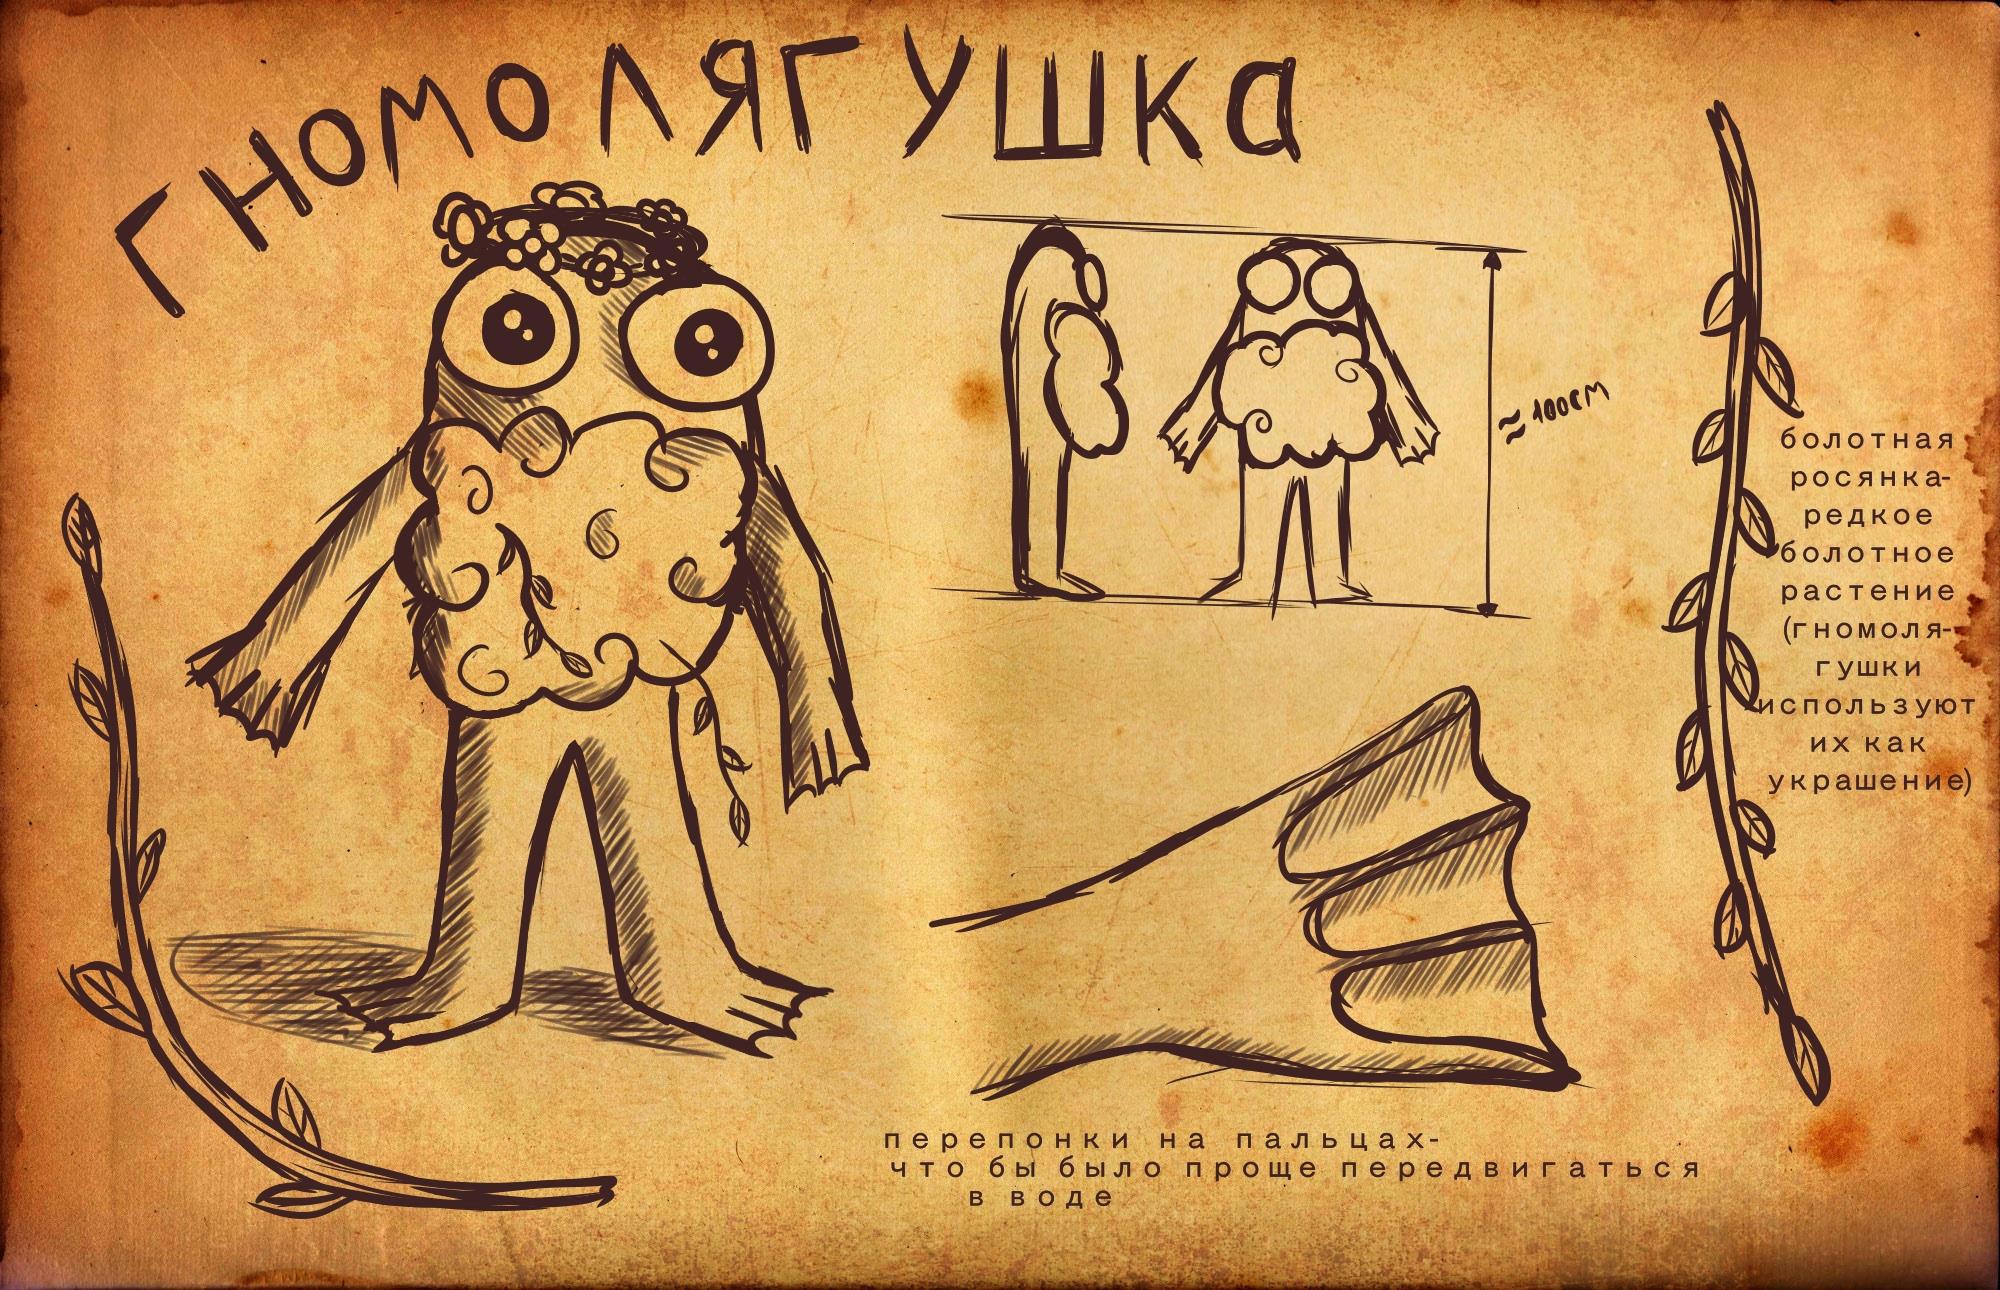 ГНОМОЛЯГУШКа
≈ 100см
болотная
росянка-
редкое
болотное
растение
(гномоля-
гушки
используют
их как
украшение)
перепонки на пальцах-
что бы было проще передвигаться
в воде